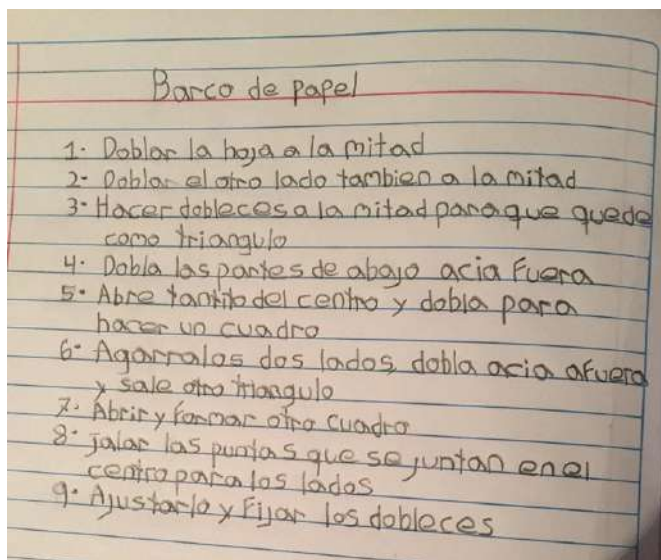 Barco de papel
1- Doblar la hoja a la mitad
2- Doblar el otro lado tambien a la mitad
3- Hacer dobleces a la mitad para que quede
como triangulo
4- Dobla las partes de abajo acia Fuera
5- Abre tantito del centro y dobla para
hacer un cuadro
6- Agarra los dos lados, dobla acia afuera
y sale otro triangulo
7- Abrir y Formar otro cuadro
8- jalar las puntas que se juntan en el
centro para los lados
9- Ajustarlo y Fijar los dobleces